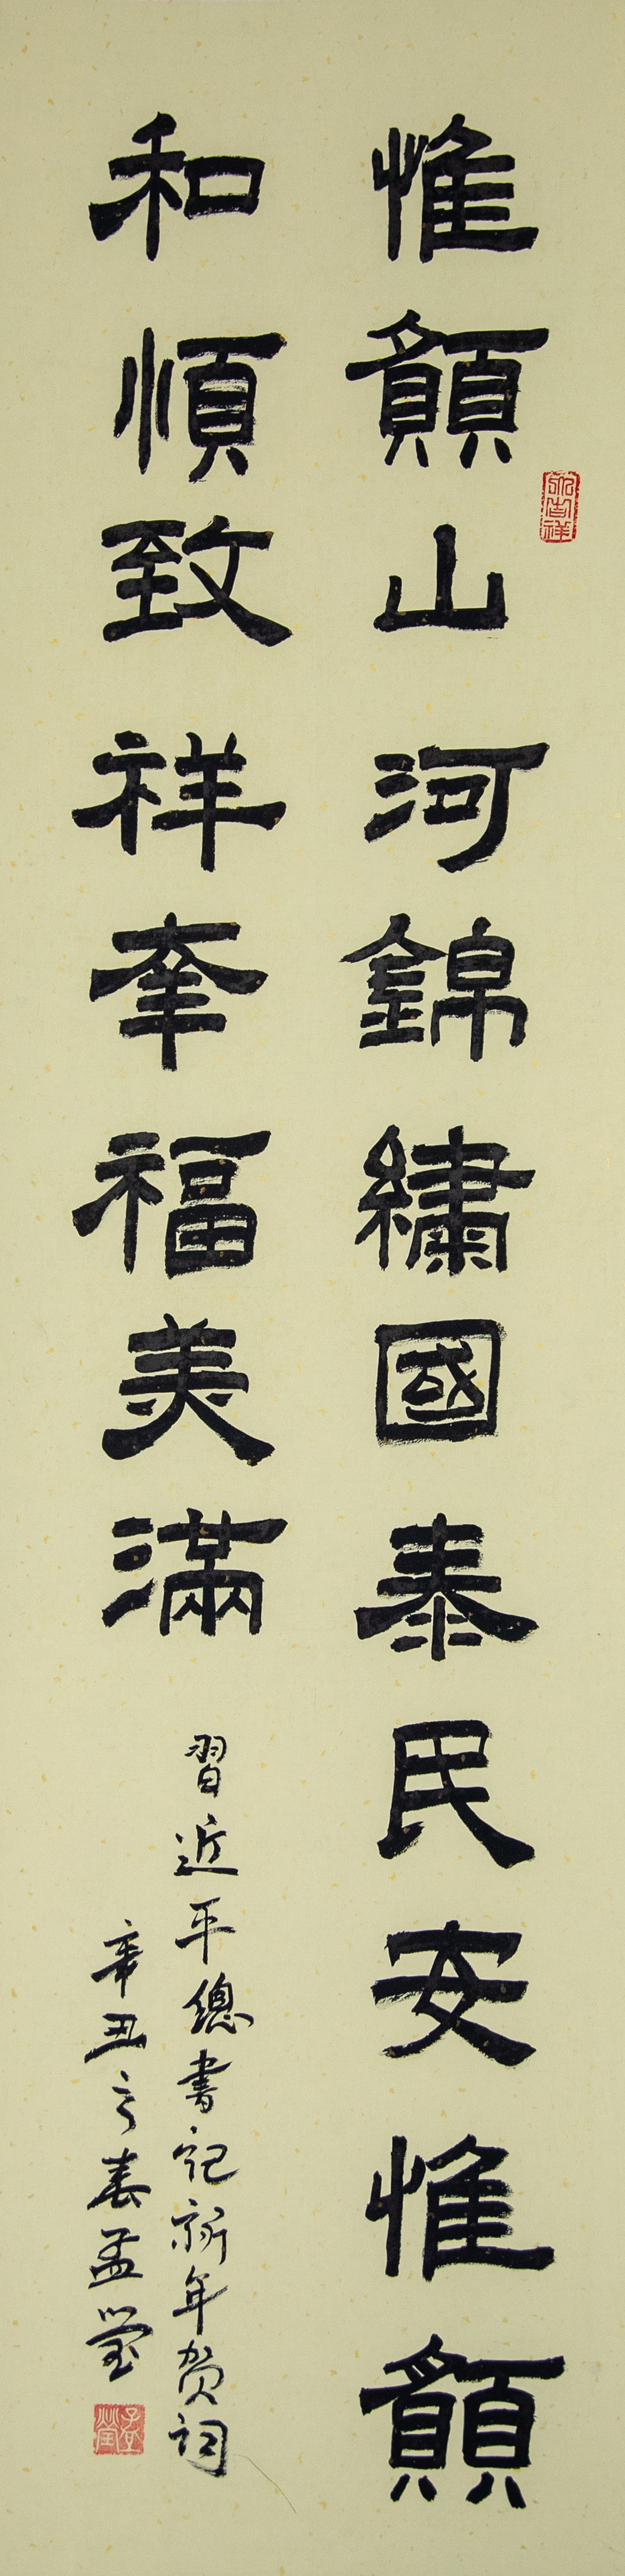 惟願山河錦繡國泰民安惟願
和順致祥幸福美滿
習近平總書記新年贺詞
辛丑之春孟瑩
孟瑩